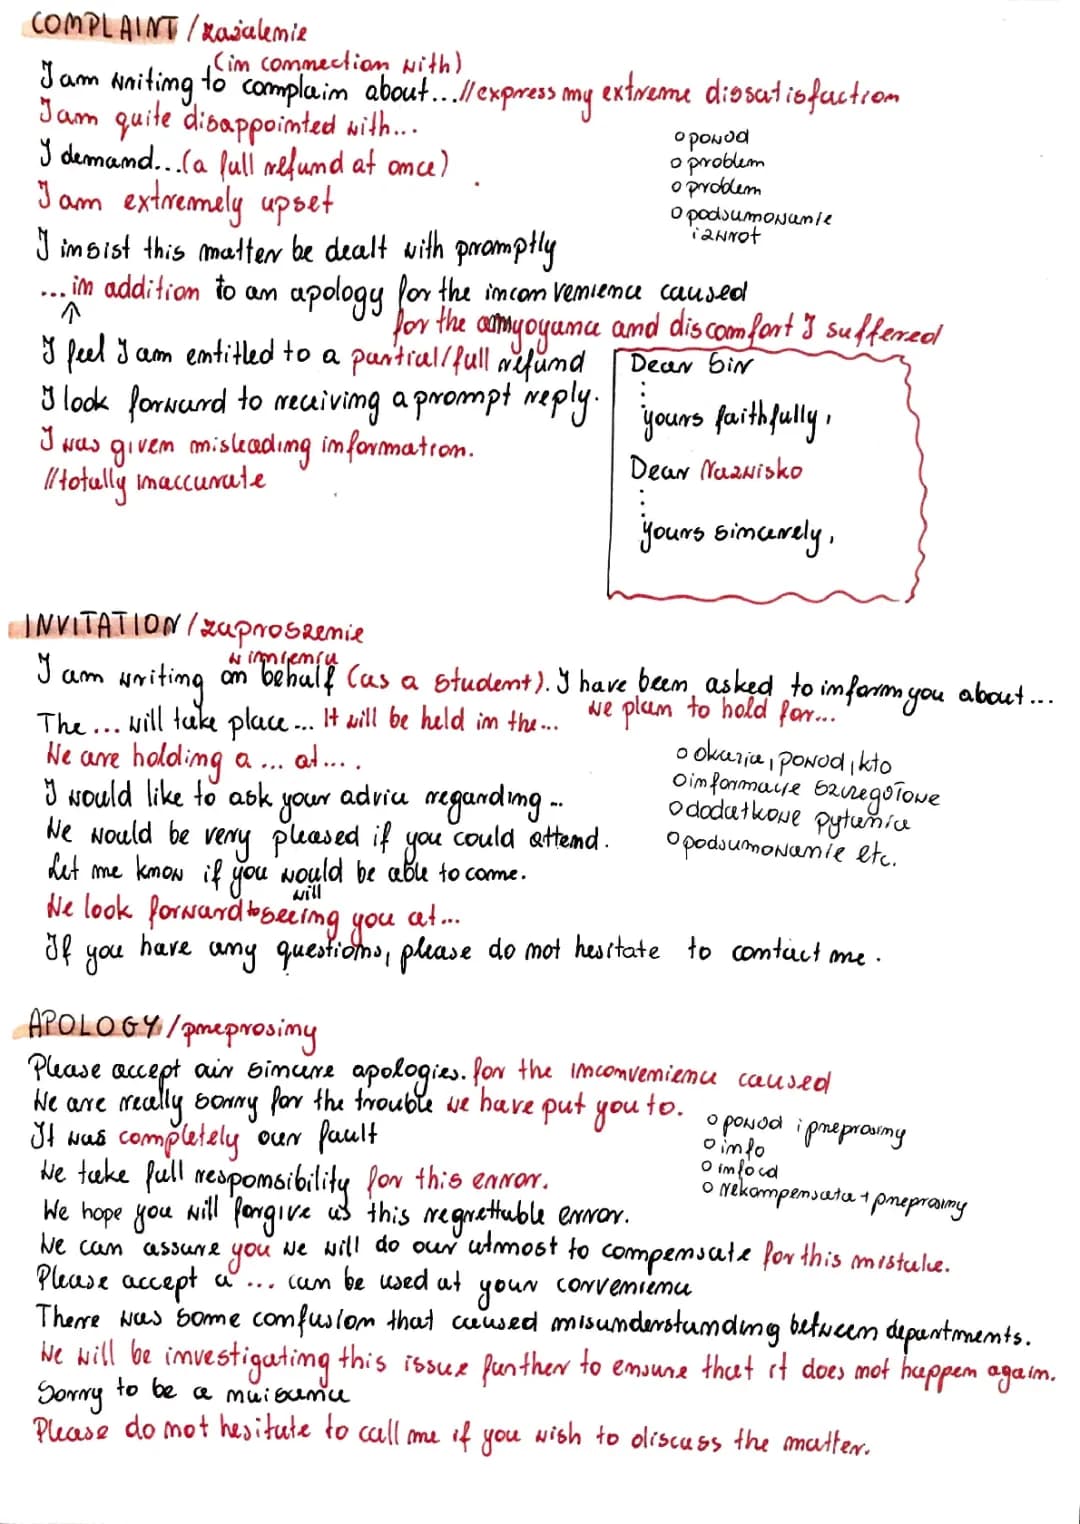 COMPLAINT / zażalenie
(in connection with)
I am writing to complain about...//express my extreme dissatisfaction
I am quite disappointed with...
I demand...(a full refund at once)
I am extremely upset
I insist this matter be dealt with promptly
... in addition to an apology for the inconvenience caused
for the annyoyance and discomfort I suffered
I feel I am entitled to a partial/full refund
I look forward to receiving a prompt reply.
I was given misleading information.
//totally inaccurate
o powód
o problem
o problem
o podsumowanie
i zwrot
Dear Sir
yours faithfully,
Dear Nazwisko
yours sincerely,
INVITATION / zaproszenie
w imieniu
I am writing on behalf (as a student). I have been asked to inform you about...
The ... will take place ... It will be held in the... we plan to hold for...
We are holding a ... at....
I would like to ask your advice regarding ...
We would be very pleased if you could attend.
Let me know if you would be able to come.
will
We look forward to seeing you at...
If you have any questions, please do not hesitate to contact me.
o okazja, powód, kto
o informacje szczegółowe
o dodatkowe pytania
o podsumowanie etc.
APOLOGY / przeprosiny
Please accept our sincere apologies. for the inconvenience caused
We are really sorry for the trouble we have put you to.
It was completely our fault
We take full responsibility for this error.
We hope you will forgive us this regrettable error.
We can assure you we will do our utmost to compensate for this mistake.
Please accept a ... can be used at your convenience
There was some confusion that caused misunderstanding between departments.
We will be investigating this issue further to ensure that it does not happen again.
Sorry to be a nuisance
Please do not hesitate to call me if you wish to discuss the matter.
o powód i przeprosiny
o info
o info cd
o rekompensata + przeprosiny